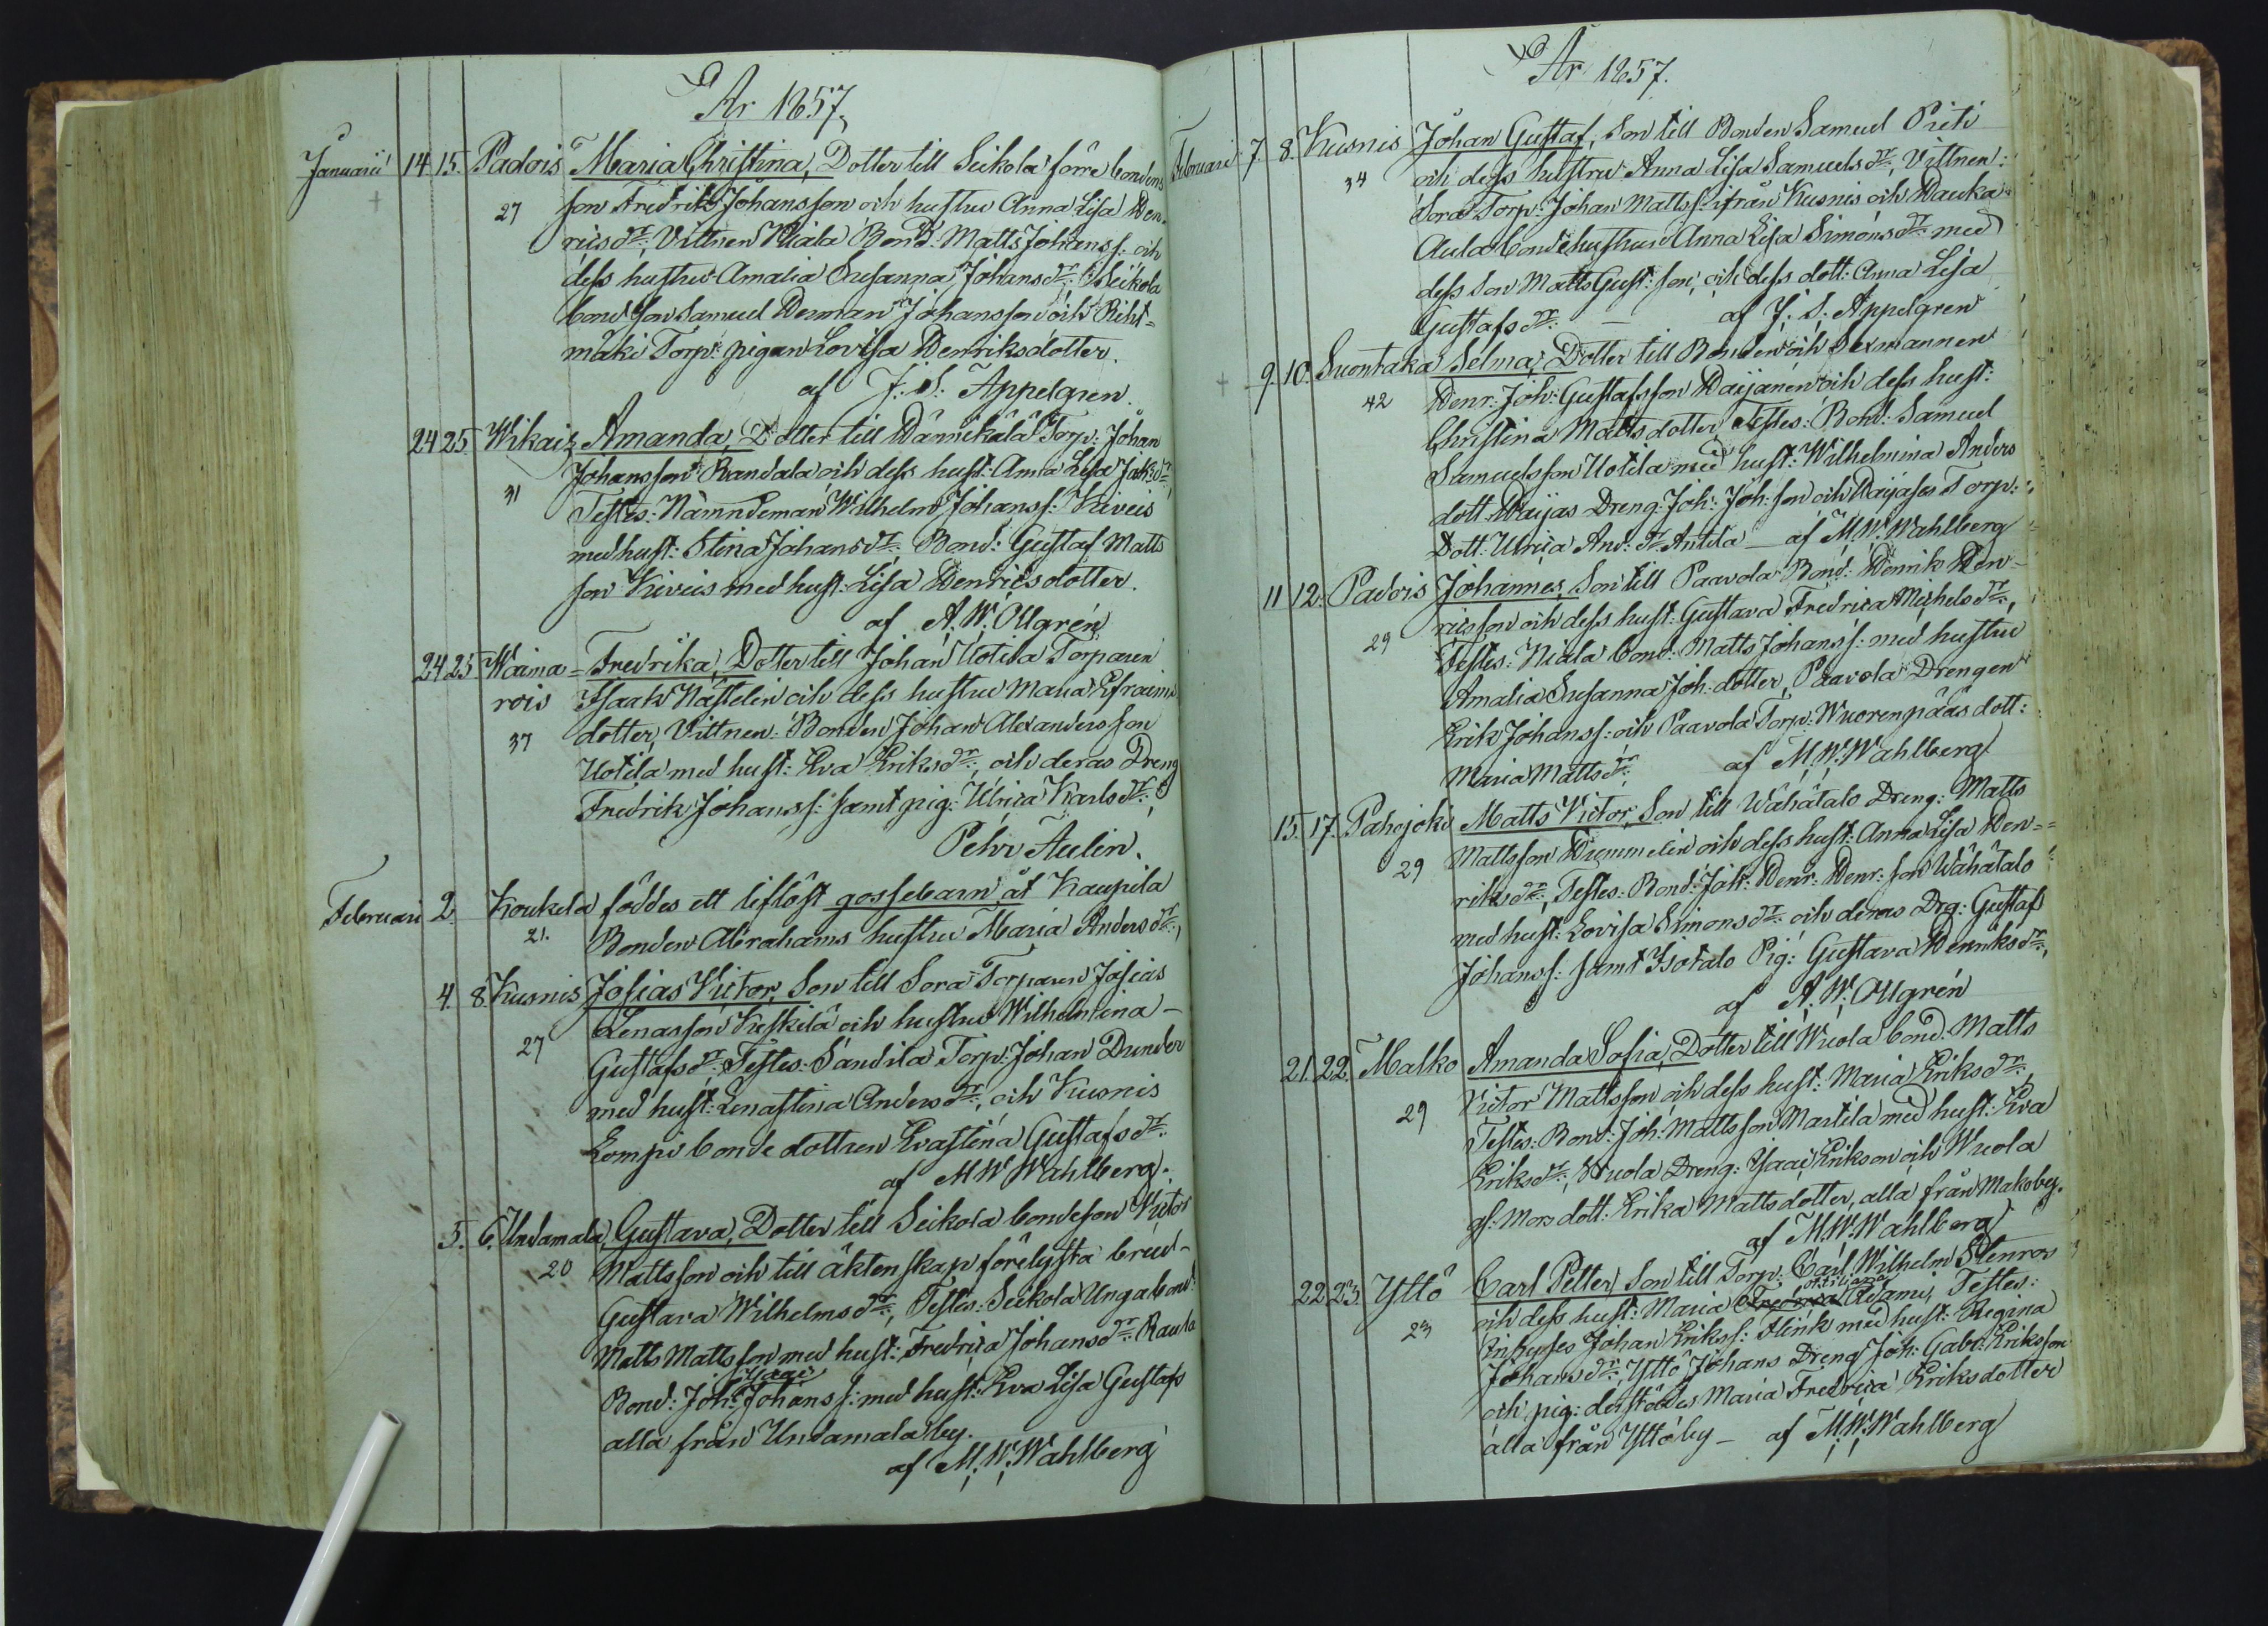 År 1857.
Januarii 14 15. Padois Maria Christina, Dotter till Seikola förre bondens
27 son Fredrik Johansson och hustru Anna Lisa Hen-
rics dr: Vittnen Kiala Bond: Matts Johanss: och
dess hustru Amalia Susanna Johans dr: Seikola
bond son Samuel Herman Johansson och Riht-
mäki Torp: pigan Lovisa Henriksdotter.
af J: S: Appelgren.
24 25 Wikais Amanda, Dotter till Hännikälä Torp: Johan
31 Johansson Randala och dess hust: Anna Lisa Joh: dr
Testes: Nämndeman Wilhelm Johanss: Kiveis
med hust: Stina Johans dr: Bond: Gustaf Matts
son Kiveis med hust: Lisa Henricsdotter.
af A. W. Ollgrén
24 25 Waima- Fredrika, Dotter till Johan Uotila Torparen
rois Isaak Nästelin och dess hustru Maria Efraims
37 dotter, Vittnen: Bonden Johan Alexandersson
Uotila med hust: Eva Eriks dr:, och deras Dreng
Fredrik Johanss: samt pig: Ulrica Karls dr:
Pehr Aulin.
Februari 2. Koukela föddes ett liflöst gossebarn åt Kaupila
21. Bonden Abrahams hustru Maria Anders dr:,
4. 8. Kusnis Josias Victor, Son till Sora Torparen Josias
27 Lenasson Keskilä och hustru Wilhelmina -
Gustafs dr: Testes: Sandila Torp: Johan Dunder
med hust: Lenastina Anders dr:, och Kusnis
Lompi bonde dottren Evastina Gustafs dr:
af M W Wahlberg.
5. 6. Undamala, Gustava, Dotter till Seikola bondeson Victor
20 Mattsson och till äktenskap förelysta brud-
Gustava Wilhelms dr:, Testes: Seikola Unga bond:
Matts Mattsson med hust: Fredrica Johans dr: Raula
Isaac
Bond: Joh: Johanss: med hust: Eva Lisa Gustafs
alla från Undamala by.
af M. W. Wahlberg
År 1857.
Februari 7. 8. Kusnis Johan Gustaf, Son till Bonden Samuel Priti
34 och dess hustru Anna Lisa Samuels dr:, Vittnen:
Sora Torp: Johan Mattss: ifrån Kusnis och Hauka-
Aula bonde hustrun Anna Lisa Simons dr: med
dess son Matts Gust: son, och dess dott: Anna Lisa
Gustafs dr: - af J. S. Appelgren
9. 10. Suontaka Selma, Dotter till Bonden och Sexmannen
42 Henr: Joh: Gustafsson Haijanen och dess hust:
Christina Mattsdotter, Testes: Bond: Samuel
Samuelsson Uotila med hust: Wilhelmina Anders
dott. Haijas Dreng: Joh: Joh: son och Haijases Torp:
Dott: Ulrica And: dr Antila - af M. W. Wahlberg
11 12. Padois Johannes, Son till Paavola Bond: Henrik Hen-
29 ricsson och dess hust: Gustava Fredrica Michels dr:,
Testes: Kiala bond: Matts Johanss: med hustru
Amalia Susanna Joh: dotter, Paavola Drengen
Erik Johanss: och Paavola Torp: Wuorenpääs dott:
Maria Matts dr: af M. W. Wahlberg
15. 17. Pahojoki Matts Victor, Son till Wähätalo Dreng: Matts
29 Mattsson Hummelin och dess hust: Anna Lisa Hen-
riks dr:, Testes: Bond: Joh: Henr: Henr: son Wähätalo
med hust: Lovisa Simons dr: och deras Drg: Gustaf
Johanss: samt Isotalo Pig: Gustava Henriks dr:,
af A. W. Ollgrén
21. 22. Malko Amanda Sofia, Dotter till Wuola bond. Matts
29 Victor Mattsson och dess hust: Maria Eriks dr:
Testes: Bond: Joh: Mattsson Martila med hust: Eva
Eriks dr:, Wuola Dreng: Isaac Erikson och Wuola
gl: Mors dott: Erika Mattsdotter, alla från Malko by.
af M. W. Wahlberg
22. 23. Yttö Carl Petter, Son till Torp: Carl Wilhelm Stenros
Ottiliana
23 och dess hust: Maria Fredrica Adami, Testes:
Johan Erikss: Flink med hust: Regina
Johans dr:, Yttö Johans Dreng Joh: Gabr: Eriksson
och pig: derstädes Maria Fredrica Eriksdotter
alla från Yttö by - af M. W. Wahlberg